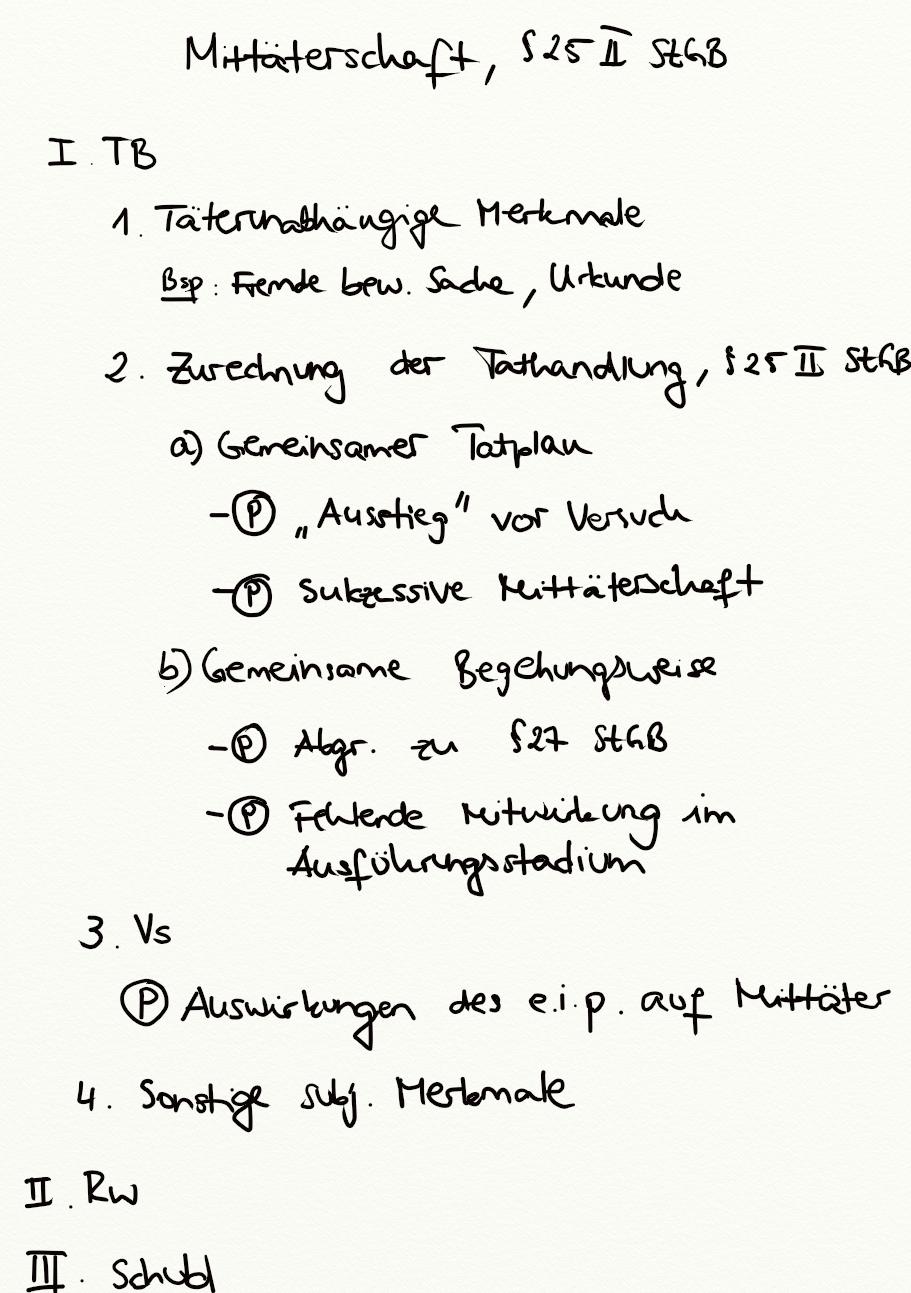 Mittäterschaft, § 25 II StGB
I. TB
1. Täterunabhängige Merkmale
Bsp: Fremde bew. Sache, Urkunde
2. Zurechnung der Tathandlung, § 25 II StGB
a) Gemeinsamer Tatplan
- P „Ausstieg" vor Versuch
- P Sukzessive Mittäterschaft
b) Gemeinsame Begehungsweise
- P Abgr. zu § 27 StGB
- P Fehlende Mitwirkung im
Ausführungsstadium
3. Vs
P Auswirkungen des e.i.p. auf Mittäter
4. Sonstige subj. Merkmale
II. Rw
III. Schuld